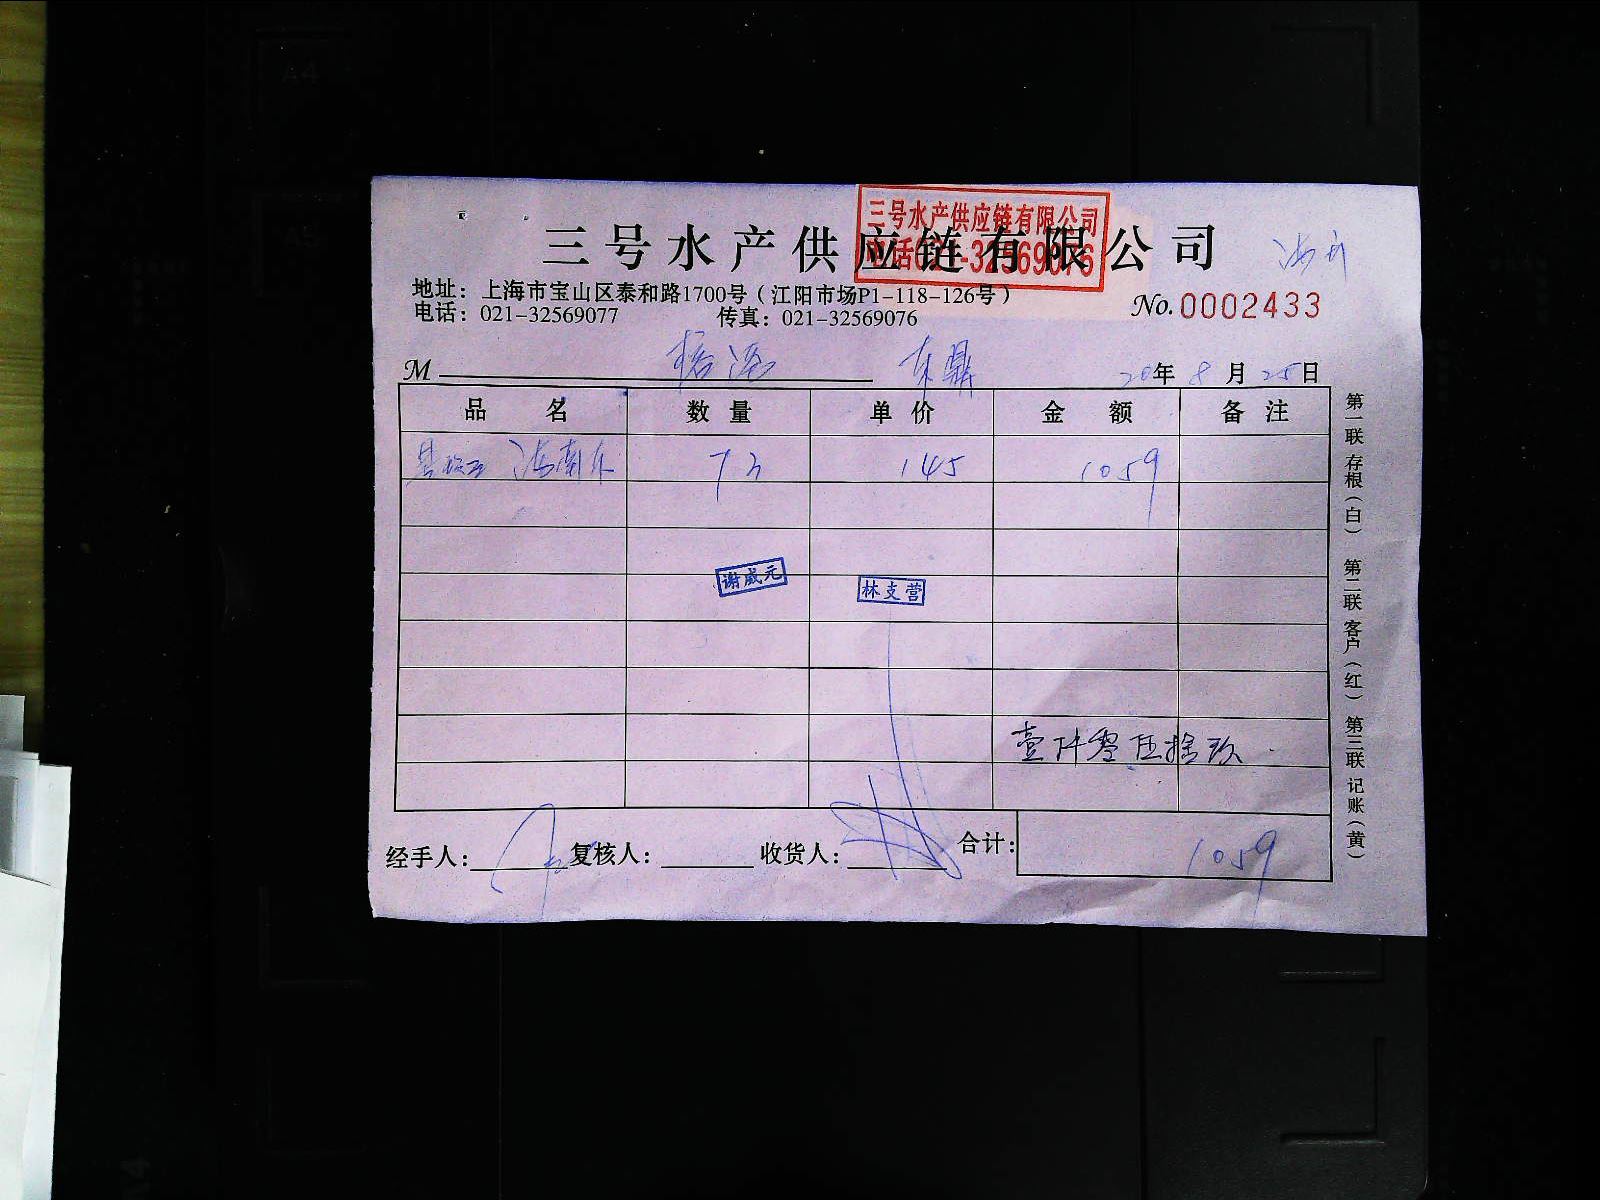 三号水产供应链有限公司
三号水产供应链有限公司
电话021-32569076
地址：上海市宝山区泰和路1700号（江阳市场P1-118-126号）
电话：021-32569077 传真：021-32569076
No.0002433
M 东鼎 20年8月25日
品名 数量 单价 金额 备注
海南 73 145 1059
谢威元 林支营
壹仟零伍拾玖
经手人： 复核人： 收货人： 合计：1059
第一联 存根（白） 第二联 客户（红） 第三联 记账（黄）
A4
A5